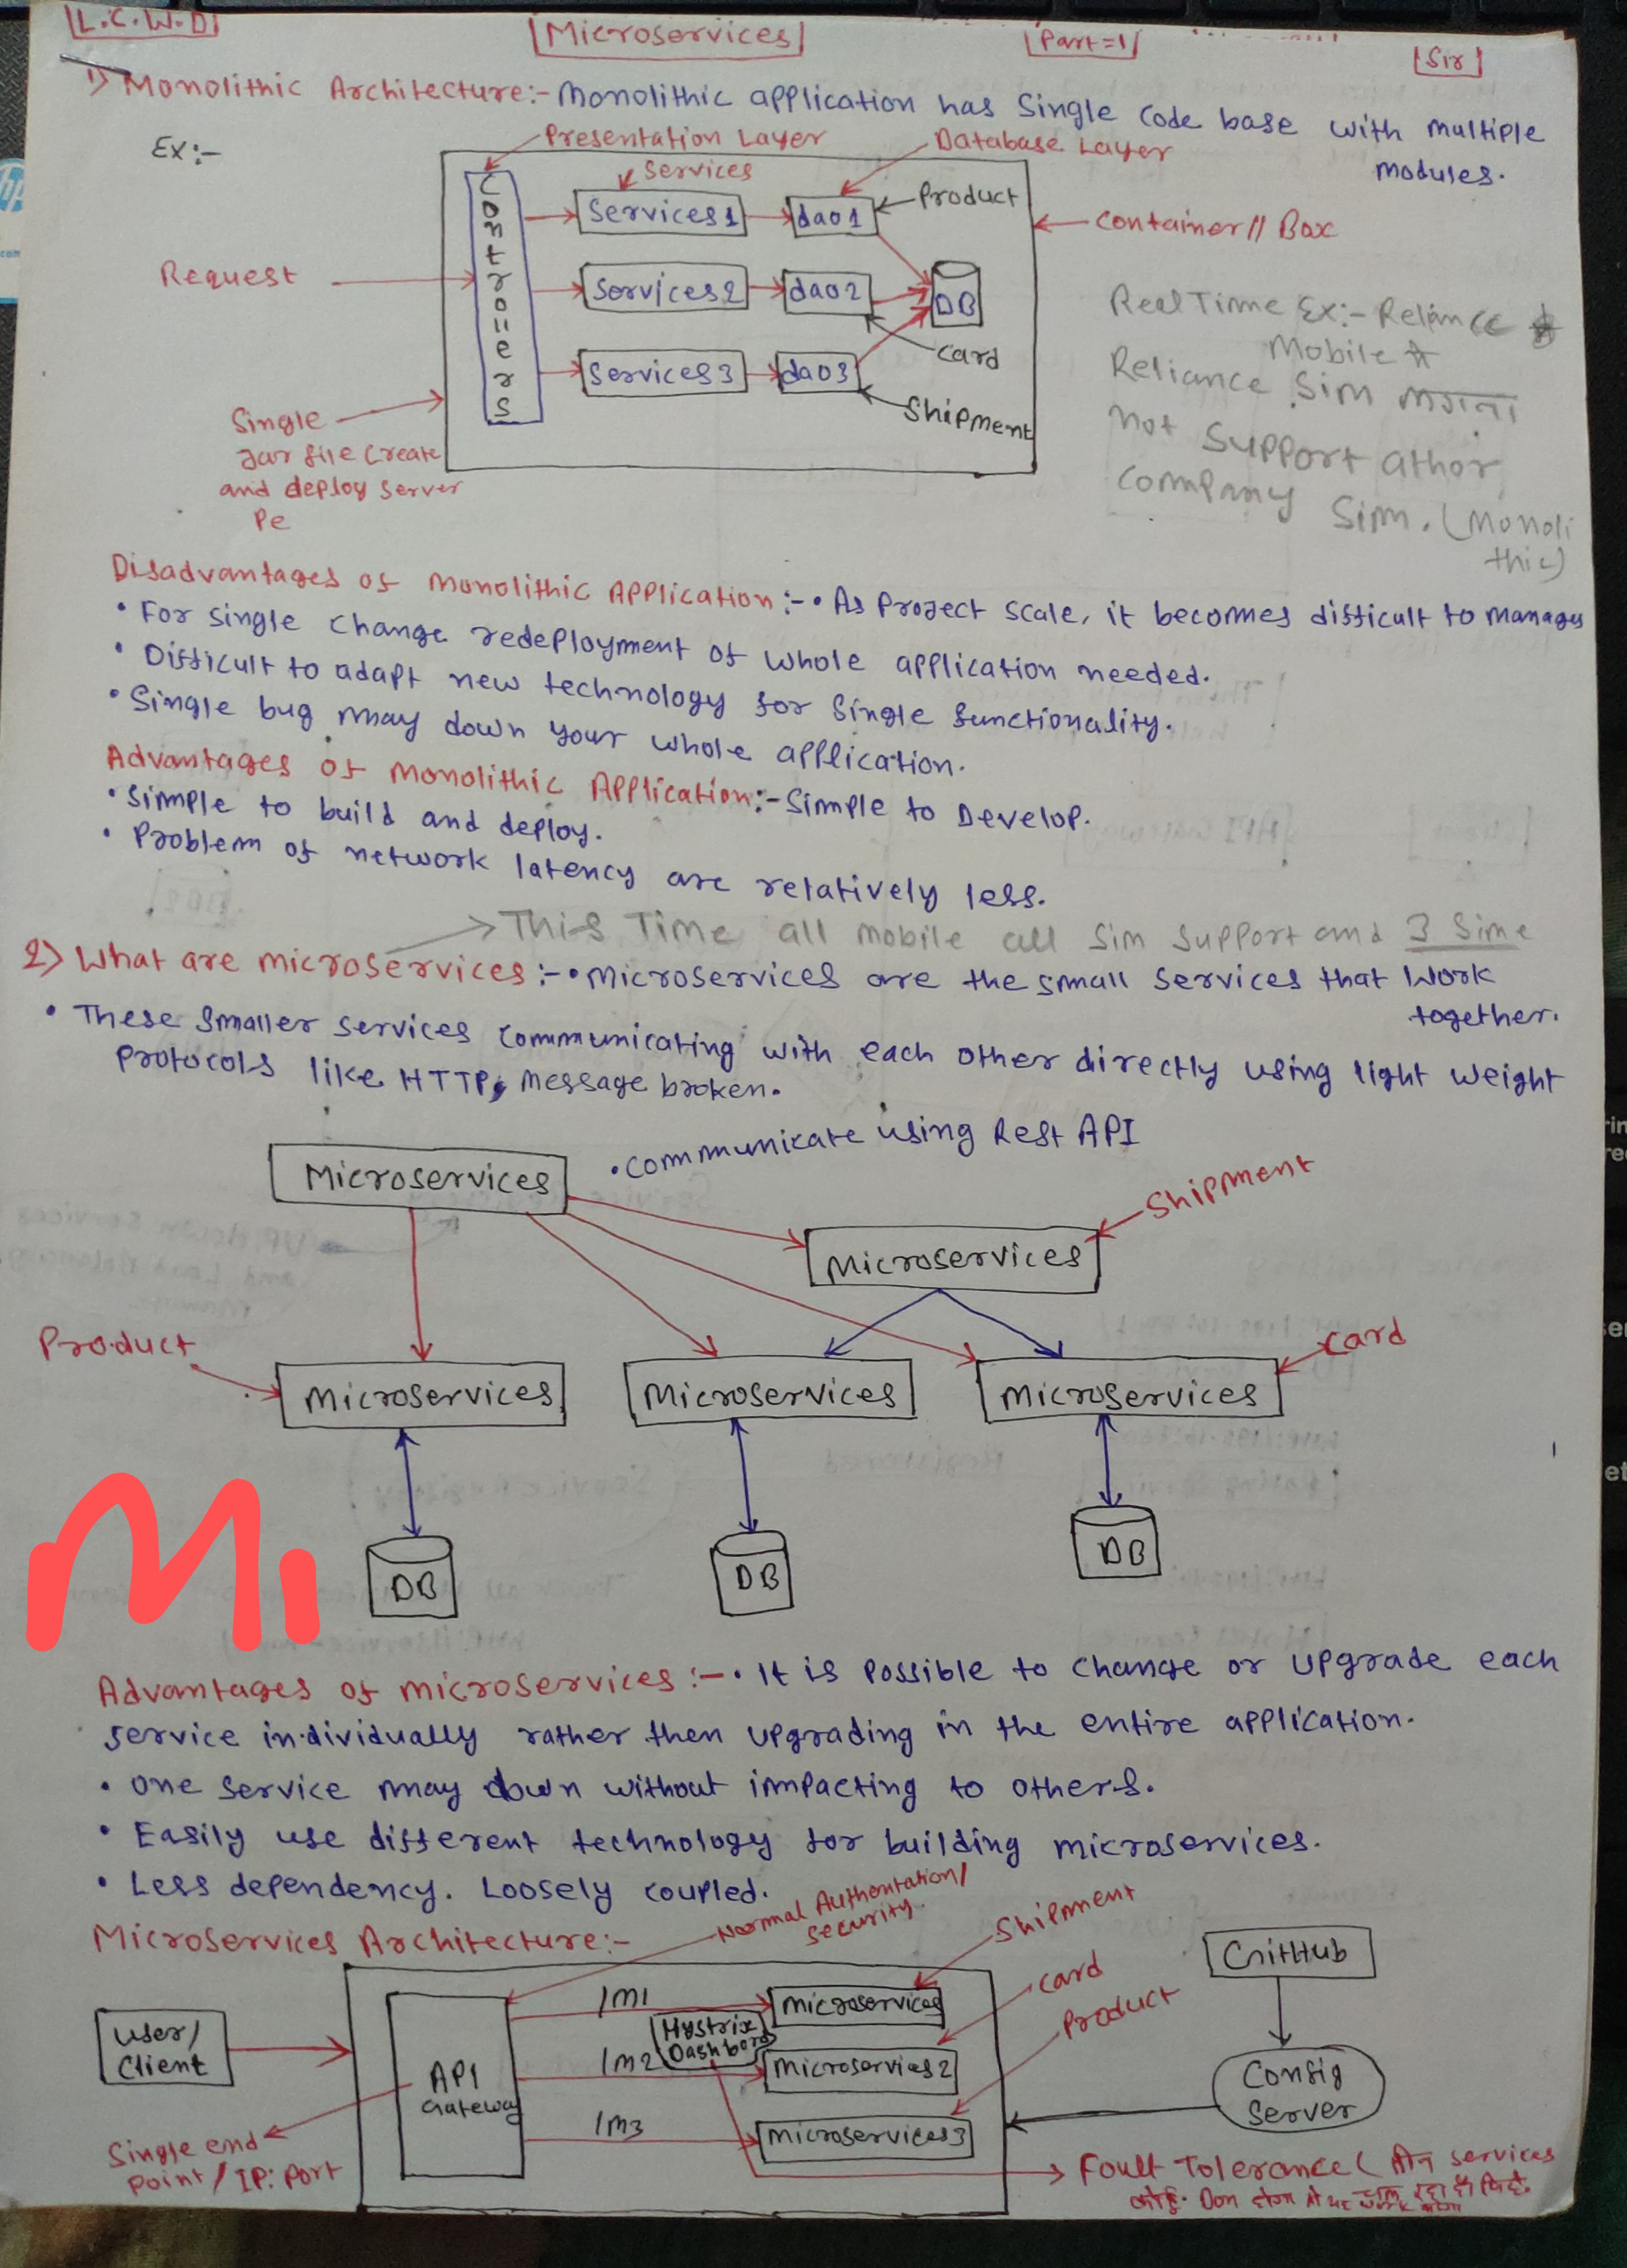 L.C.W.D
Microservices
Part=1
Sir
1) Monolithic Architecture:- Monolithic application has Single Code base with multiple
modules.
Ex:-
Presentation Layer
Database Layer
Services
Controllers
Services1
dao1
Product
Container// Box
Request
Services2
dao2
DB
Card
Services3
dao3
Shipment
Single
Jar file Create
and deploy server
Pe
Real Time Ex:- Reliance
Mobile
Reliance Sim लगता
not Support athor
Company Sim. (Monoli
thic)
Disadvantages of Monolithic Application:- • As Project Scale, it becomes difficult to manages
• For single change redeployment of whole application needed.
• Difficult to adapt new technology for Single functionality.
• Single bug may down your whole application.
Advantages of Monolithic Application:- Simple to Develop.
• Simple to build and deploy.
• Problem of network latency are relatively less.
This Time all mobile all Sim Support and 3 Sime
2) What are microservices:- • Microservices are the small services that Work
together.
• These Smaller services Communicating with each other directly using light weight
Protocols like HTTP, Message broken.
• Communicate using Rest API
Microservices
Shipment
Microservices
Product
Card
Microservices
Microservices
Microservices
DB
DB
DB
M1
Advantages of microservices:- • It is Possible to change or upgrade each
service individually rather then upgrading in the entire application.
• One Service may down without impacting to others.
• Easily use different technology for building microservices.
• Less dependency. Loosely coupled.
Normal Authentation/
Security.
Microservices Architecture:-
Shipment
Card
Product
GitHub
User/
Client
API
Gateway
/m1
Microservices
Hystrix
Dashbord
/m2
Microservices2
/m3
Microservices3
Config
Server
Single end
Point/IP:Port
Foult Tolerance ( तीन services